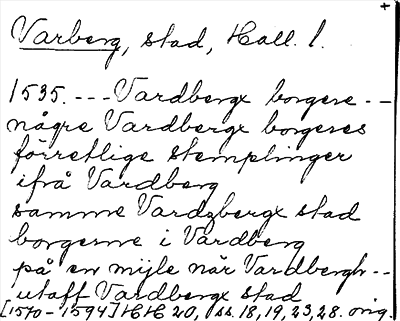 +
Varberg, stad, Hall. l.
1535. --- Vardbergx borgere --
någre Vardbergx borgeres
förretlige stemplinger
ifrå Vardberg
samme Vardzbergx stad
borgerne i Vardberg
på en mijle när Vardbergh--
utaff Vardbergx stad
[1570-1594] HH 20, ss. 18, 19, 23, 28. orig.